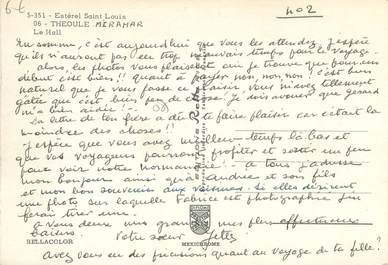 6-6
S-351 - Estérel Saint Louis
06 - THEOULE MIRAMAR
Le Hall
402
En somme, c'est aujourd'hui que vous les attendez, j'espère
qu'ils n'auront pas eu trop mauvais temps pour le voyage.
Alors, les photos vous plaisent oui je trouve que pour un
début c'est bien!! quant à payer non, non, non! c'est bien
naturel que je vous fasse ce plaisir, vous m'avez tellement
gâtée que c'est bien peu de chose. Je dois avouer que Gérard
m'a bien aidée
La lettre de ton frère a dû te faire plaisir car c'était la
moindre des choses!!
J'espère que vous avez meilleur temps là-bas et
que vos voyageurs pourront profiter et rester un peu
pour voir notre normandie! - a tous j'adresse
mon bonjour ainsi qu'à Andrée et son fils
et mon bon souvenir aux voisines. Si elles désirent
une photo sur laquelle Fabrice est photographié j'en
ferai tirer une.
a vous deux vos grands mes plus affectueux
baisers. Votre sœur
RELLACOLOR
MEXICHROME
Avez vous eu des précisions quant au voyage de ta fille?